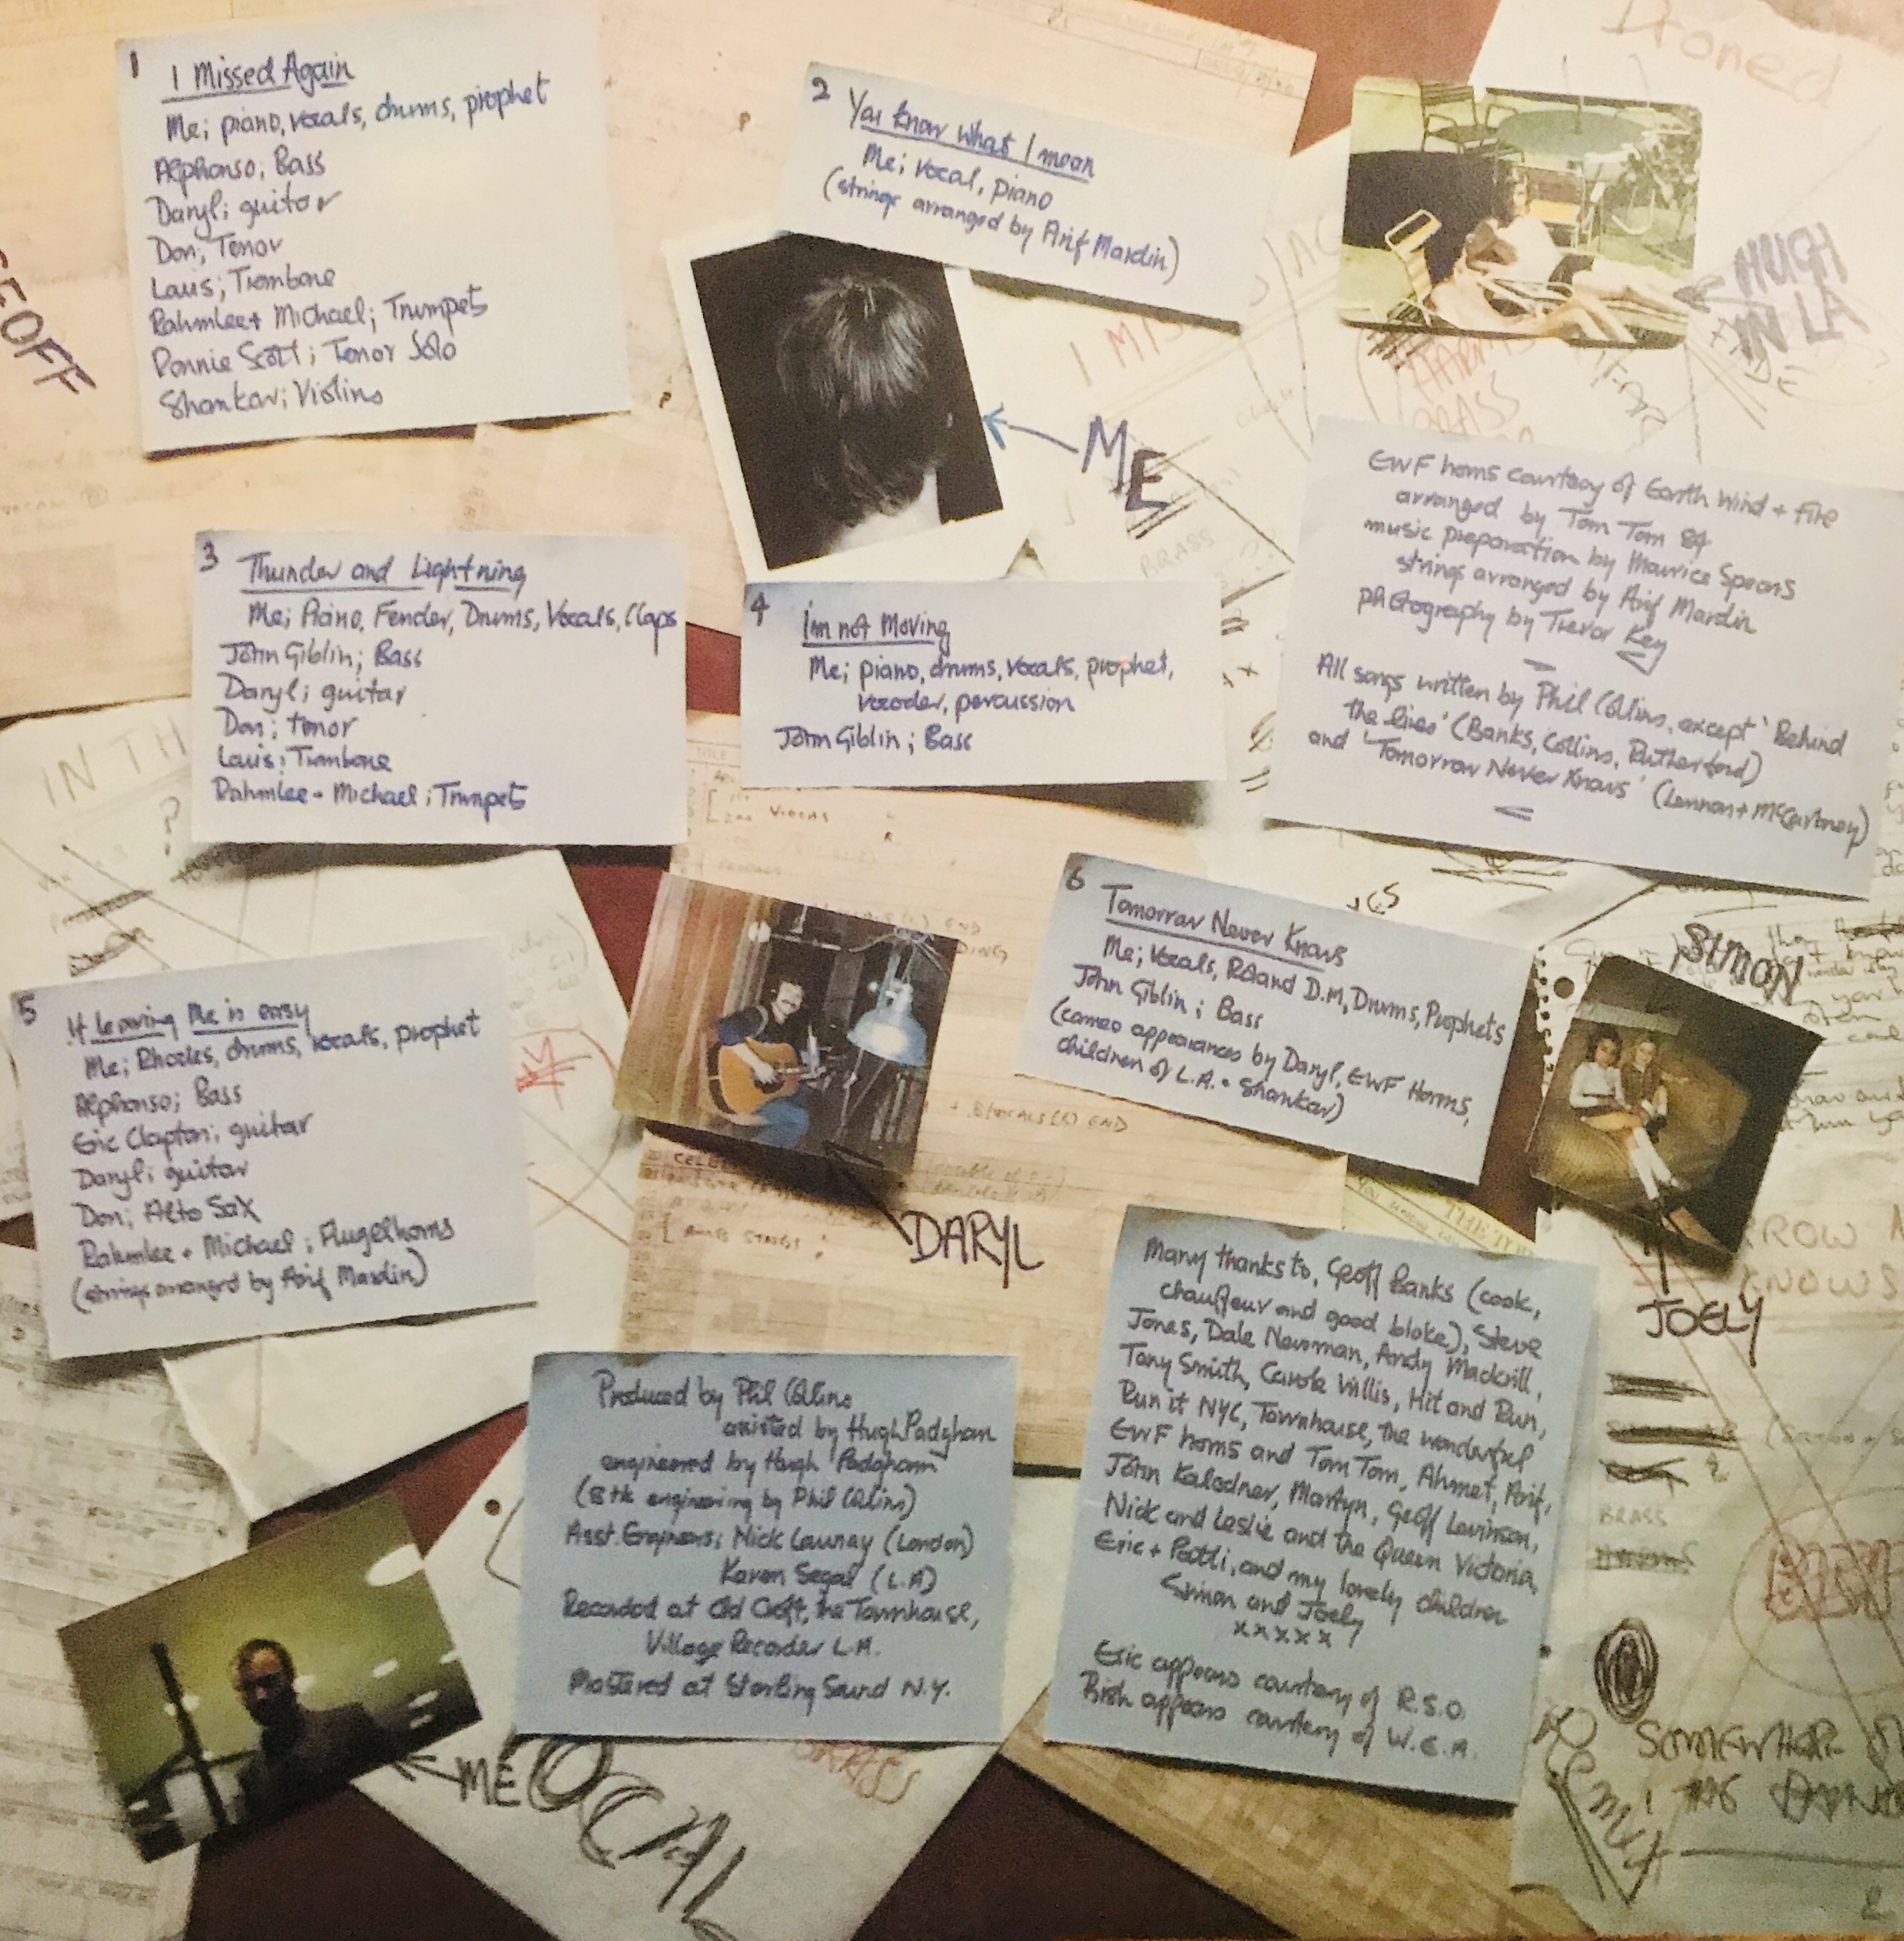 1
I Missed Again
Me; piano, vocals, drums, prophet
Alphonso; Bass
Daryl; guitar
Don; Tenor
Louis; Trombone
Rahmlee + Michael; Trumpets
Ronnie Scott; Tenor Solo
Shankar; Violins
2
You know what I mean
Me; vocal, piano
(strings arranged by Arif Mardin)
HUGH
IN LA
EOFF
ME
EWF horns courtesy of Earth Wind + Fire
arranged by Tom Tom 84
music preparation by Maurice Spears
strings arranged by Arif Mardin
photography by Trevor Key
All songs written by Phil Collins, except 'Behind
the lines' (Banks, Collins, Rutherford)
and 'Tomorrow Never Knows' (Lennon + McCartney)
3
Thunder and Lightning
Me; Piano, Fender, Drums, Vocals, Claps
John Giblin; Bass
Daryl; guitar
Don; tenor
Louis; Trombone
Rahmlee + Michael; Trumpets
4
I'm not Moving
Me; piano, drums, vocals, prophet,
vocoder, percussion
John Giblin; Bass
IN TH
BRASS
5
If leaving Me is easy
Me; Rhodes, drums, vocals, prophet
Alphonso; Bass
Eric Clapton; guitar
Daryl; guitar
Don; Alto Sax
Rahmlee + Michael; Flugelhorns
(strings arranged by Arif Mardin)
6
Tomorrow Never Knows
Me; Vocals, Roland D.M, Drums, Prophets
John Giblin; Bass
(cameo appearances by Daryl, EWF Horns,
children of L.A. + Shankar)
SIMON
DARYL
JOELY
ROW N
KNOWS
Produced by Phil Collins
assisted by Hugh Padgham
engineered by Hugh Padgham
(8 tk engineering by Phil Collins)
Asst. Engineers; Nick Launay (London)
Karen Segal (L.A)
Recorded at Old Croft, the Townhouse,
Village Recorder L.A.
Mastered at Sterling Sound N.Y.
Many thanks to, Geoff Banks (cook,
chauffeur and good bloke), Steve
Jones, Dale Newman, Andy Mackrill,
Tony Smith, Carole Willis, Hit and Run,
Run it NYC, Townhouse, the wonderful
EWF horns and Tom Tom, Ahmet, Arif,
John Kalodner, Martyn, Geoff Levinson,
Nick and Leslie and the Queen Victoria,
Eric + Patti, and my lovely children
Simon and Joely
x x x x x
Eric appears courtesy of R.S.O.
Bish appears courtesy of W.E.A.
BRASS
ME
OCAL
BRASS
REMIX